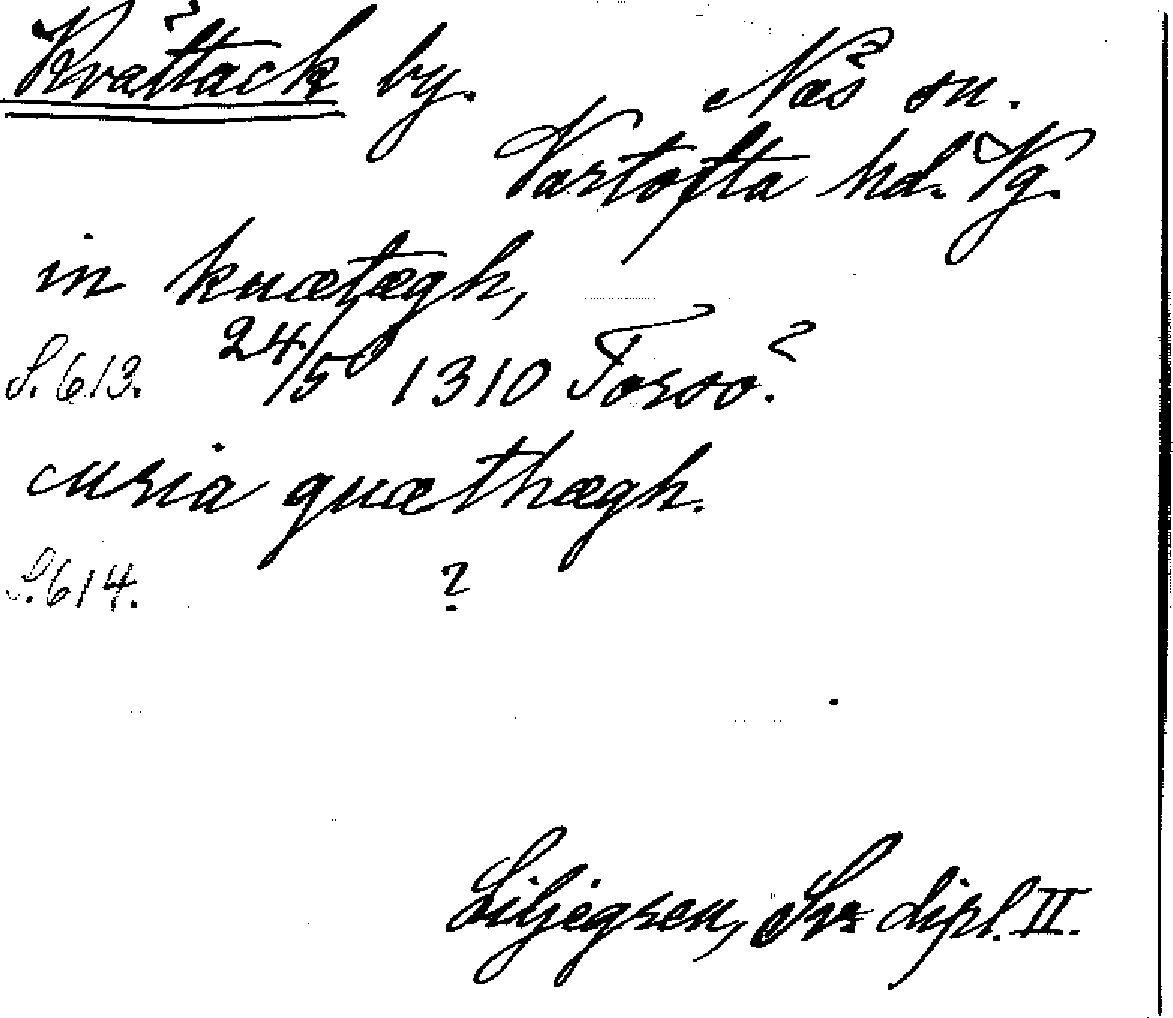 Kvättack by. Näs sn.
Vartofta hd. Vg.
in kuætægh,
S. 613. 24/5 1310 Forsö?
curia quæthægh.
S. 614. ?
Liljegren, Sv. dipl. II.